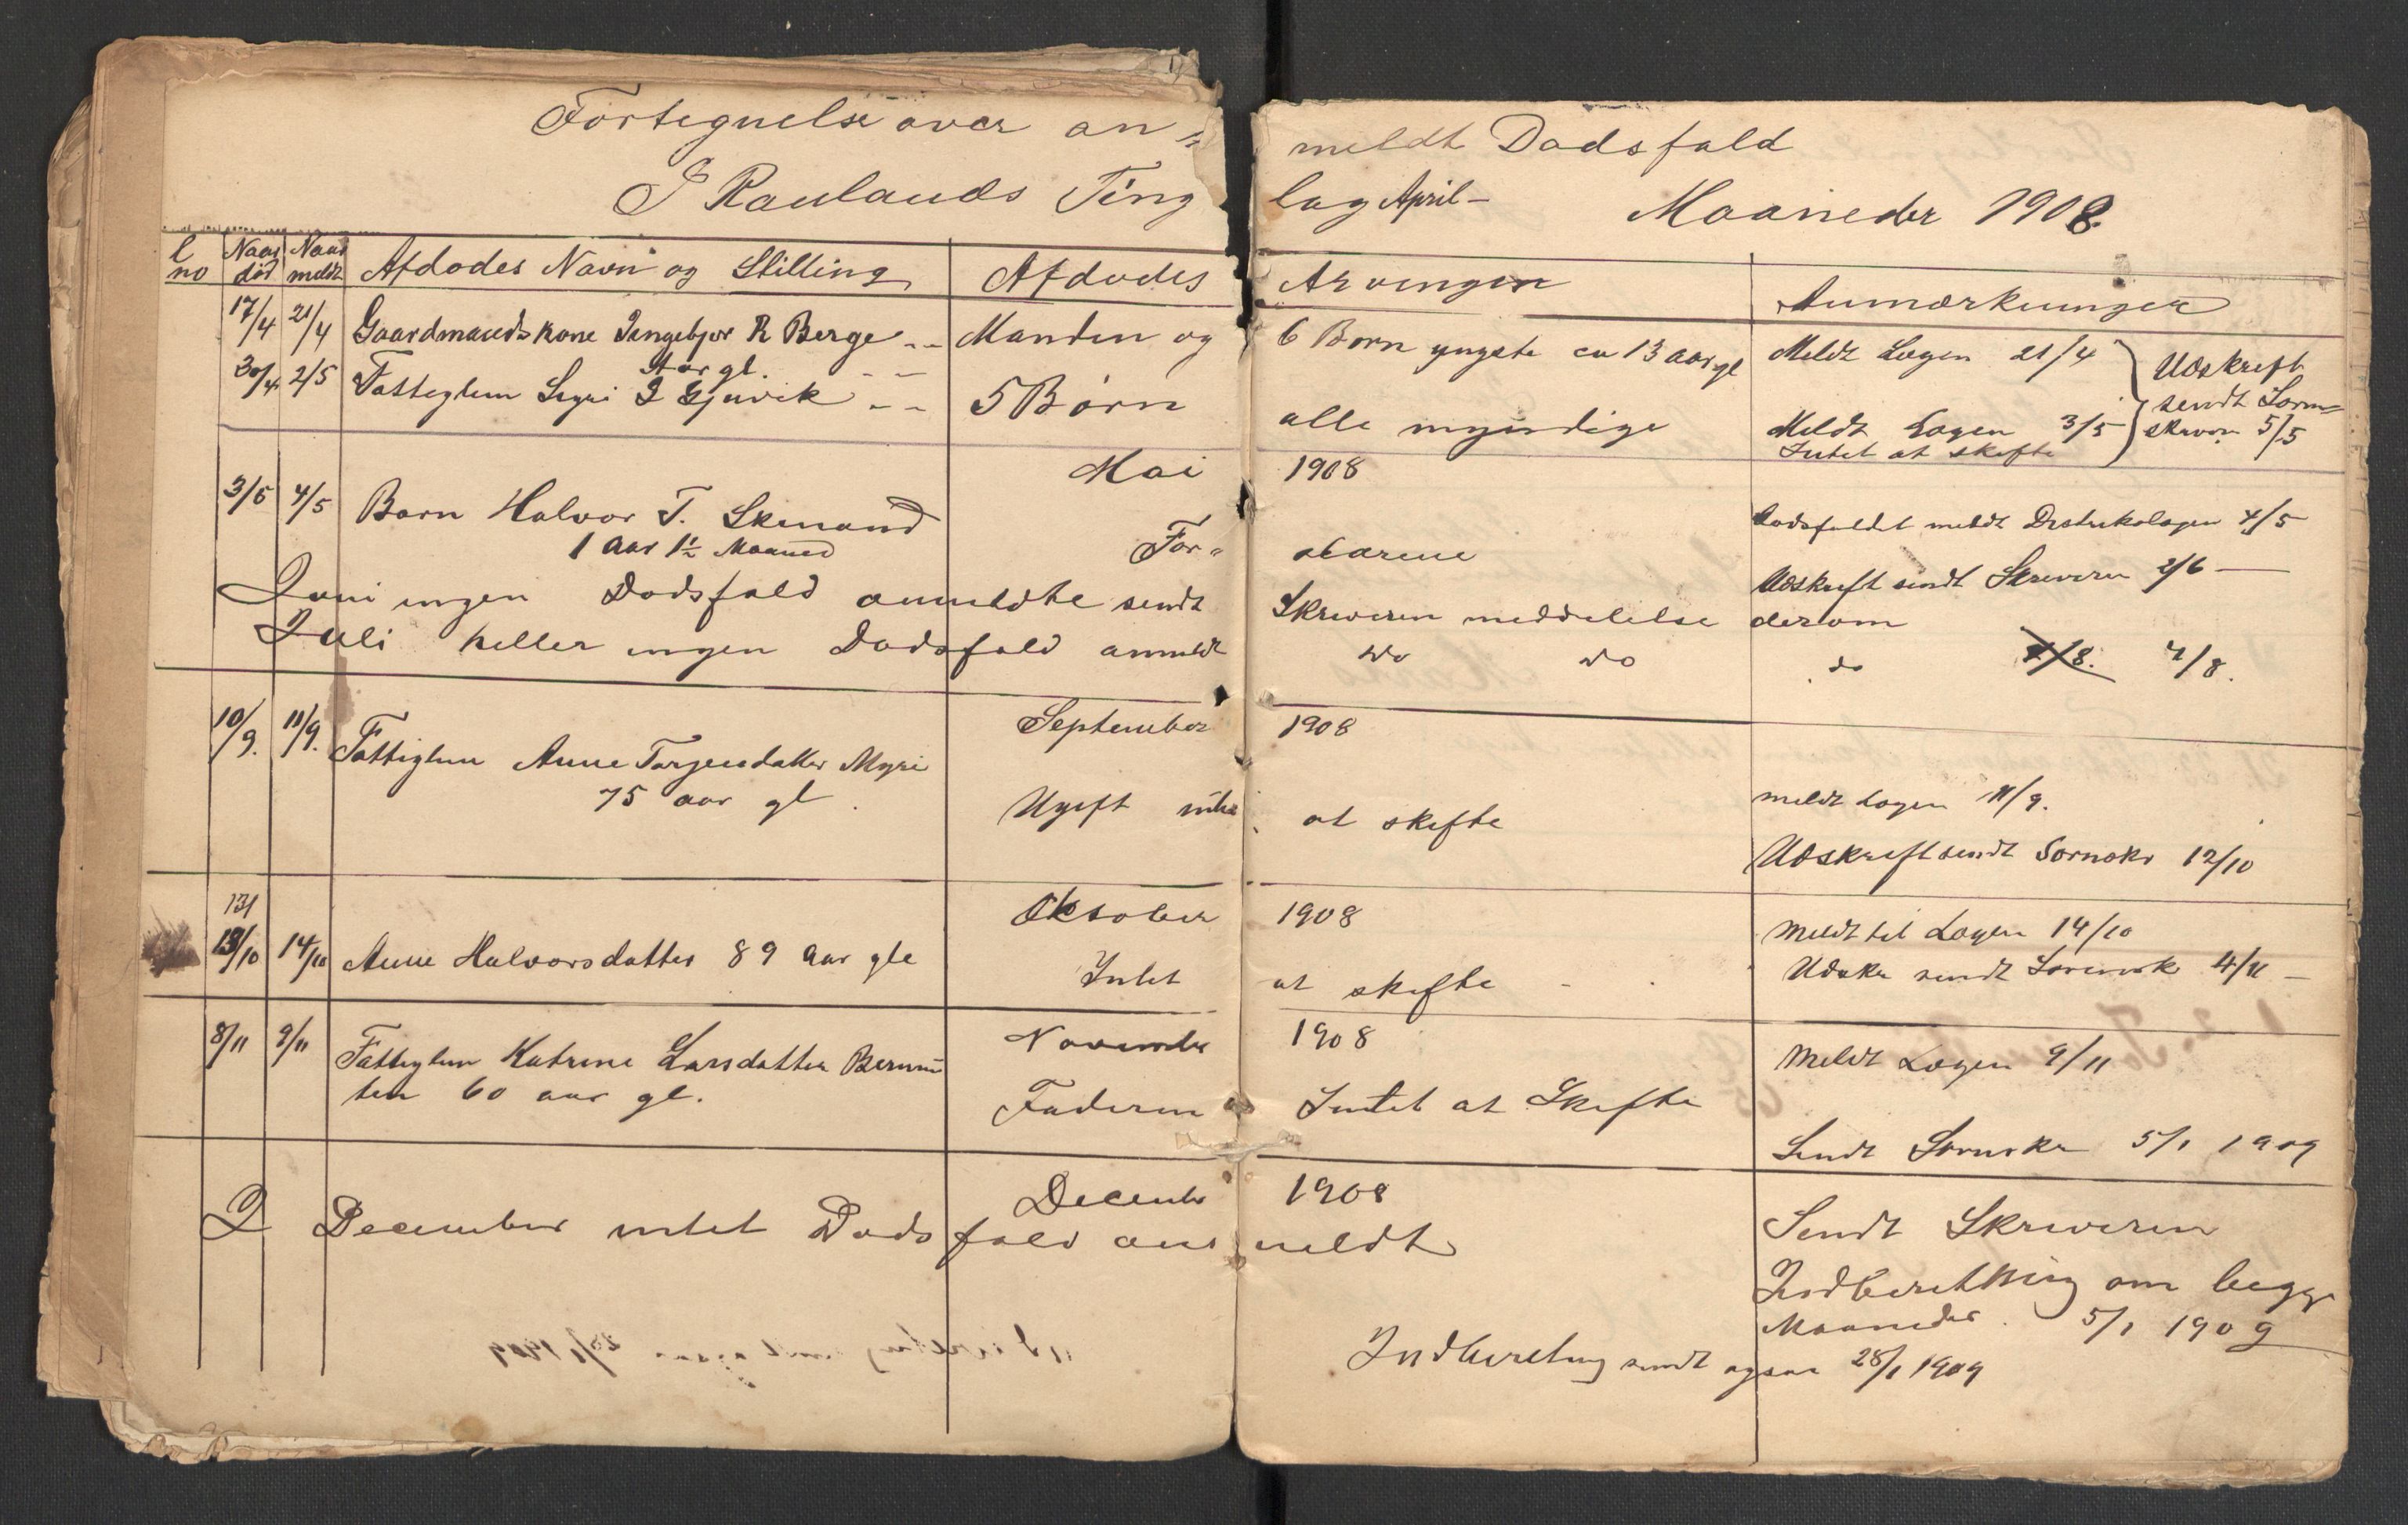 Fortegnelse over an= meldt Dødsfald
I Raulands Ting lag April - Maaneder 1908.
L no | Naar død | Naar meldt | Afdødes Navn og Stilling | Afdødes Arvinger | Anmærkninger
17/4 21/4 Gaardmandskone Ingebjør R Berge -- Manden og 6 Børn yngste ca 13 aar gl Meldt Lægen 21/4 Udskrift
aar gl. --
30/4 2/5 Fattiglem Sigri I Gjuvik -- 5 Børn alle myndige Meldt Lægen 3/5 sendt Sorn=
Intet at skifte skrivn 5/5
Mai 1908
3/5 4/5 Barn Halvor T. Skinand Dødsfaldet meldt Distriktslægen 4/5
1 Aar 1½ Maaned For= ældrene
Udskrift sendt Skriveren 2/6 —
Juni ingen Dødsfald anmeldte sendt Skriveren meddelelse derom
Juli heller ingen Dødsfald anmeldt do do do 7/8. 4/8.
September 1908
10/9. 11/9. Fattiglem Anne Torjusdatter Myri
75 aar gl. Ugift intet at skifte meldt Lægen 11/9.
Udskrift sendt Sornskr 12/10
131
Oktober 1908 Meldt til Lægen 14/10
13/10 14/10 Anne Halvorsdatter 89 Aar gle Intet at skifte - Udskr sendt Sorensk 4/11 -
November 1908
8/11 9/11 Fattiglem Katrine Larsdatter Berun= Meldt Lægen 9/11
ten 60 aar gl. Faderen Intet at Skifte
Sendt Sornskr 5/1 1909
Decembr 1908
I December intet Dødsfald anmeldt Sendt Skriveren
Indberetning om begge
Maaneder. 5/1 1909
Indberetning sendt ogsaa 28/1 1909